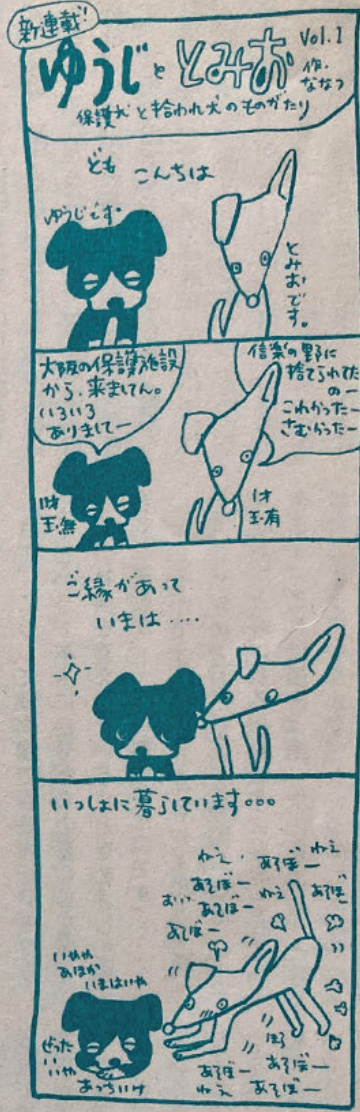 新連載!
ゆうじととみお
Vol.1
作.
ななつ
保護犬と拾われ犬のものがたり
ども
こんちは
ゆうじです。
とみおです。
大阪の保護施設
から、来ましてん。
いろいろ
ありましてー
信楽の野に
捨てられてた
のー
こわかったー
さむかったー
1才
玉・無
1才
玉・有
ご縁があって
いまは‥‥
いっしょに暮らしています。。。
ねえ
あそぼー
ねえ
あそぼー
おい
あそぼー
ねえ
あそぼ
あそぼー
いやや
あほか
いまはいや
ぜったい
いや
あっちいけ
あそぼー
あそぼー
ねえ
あそぼー